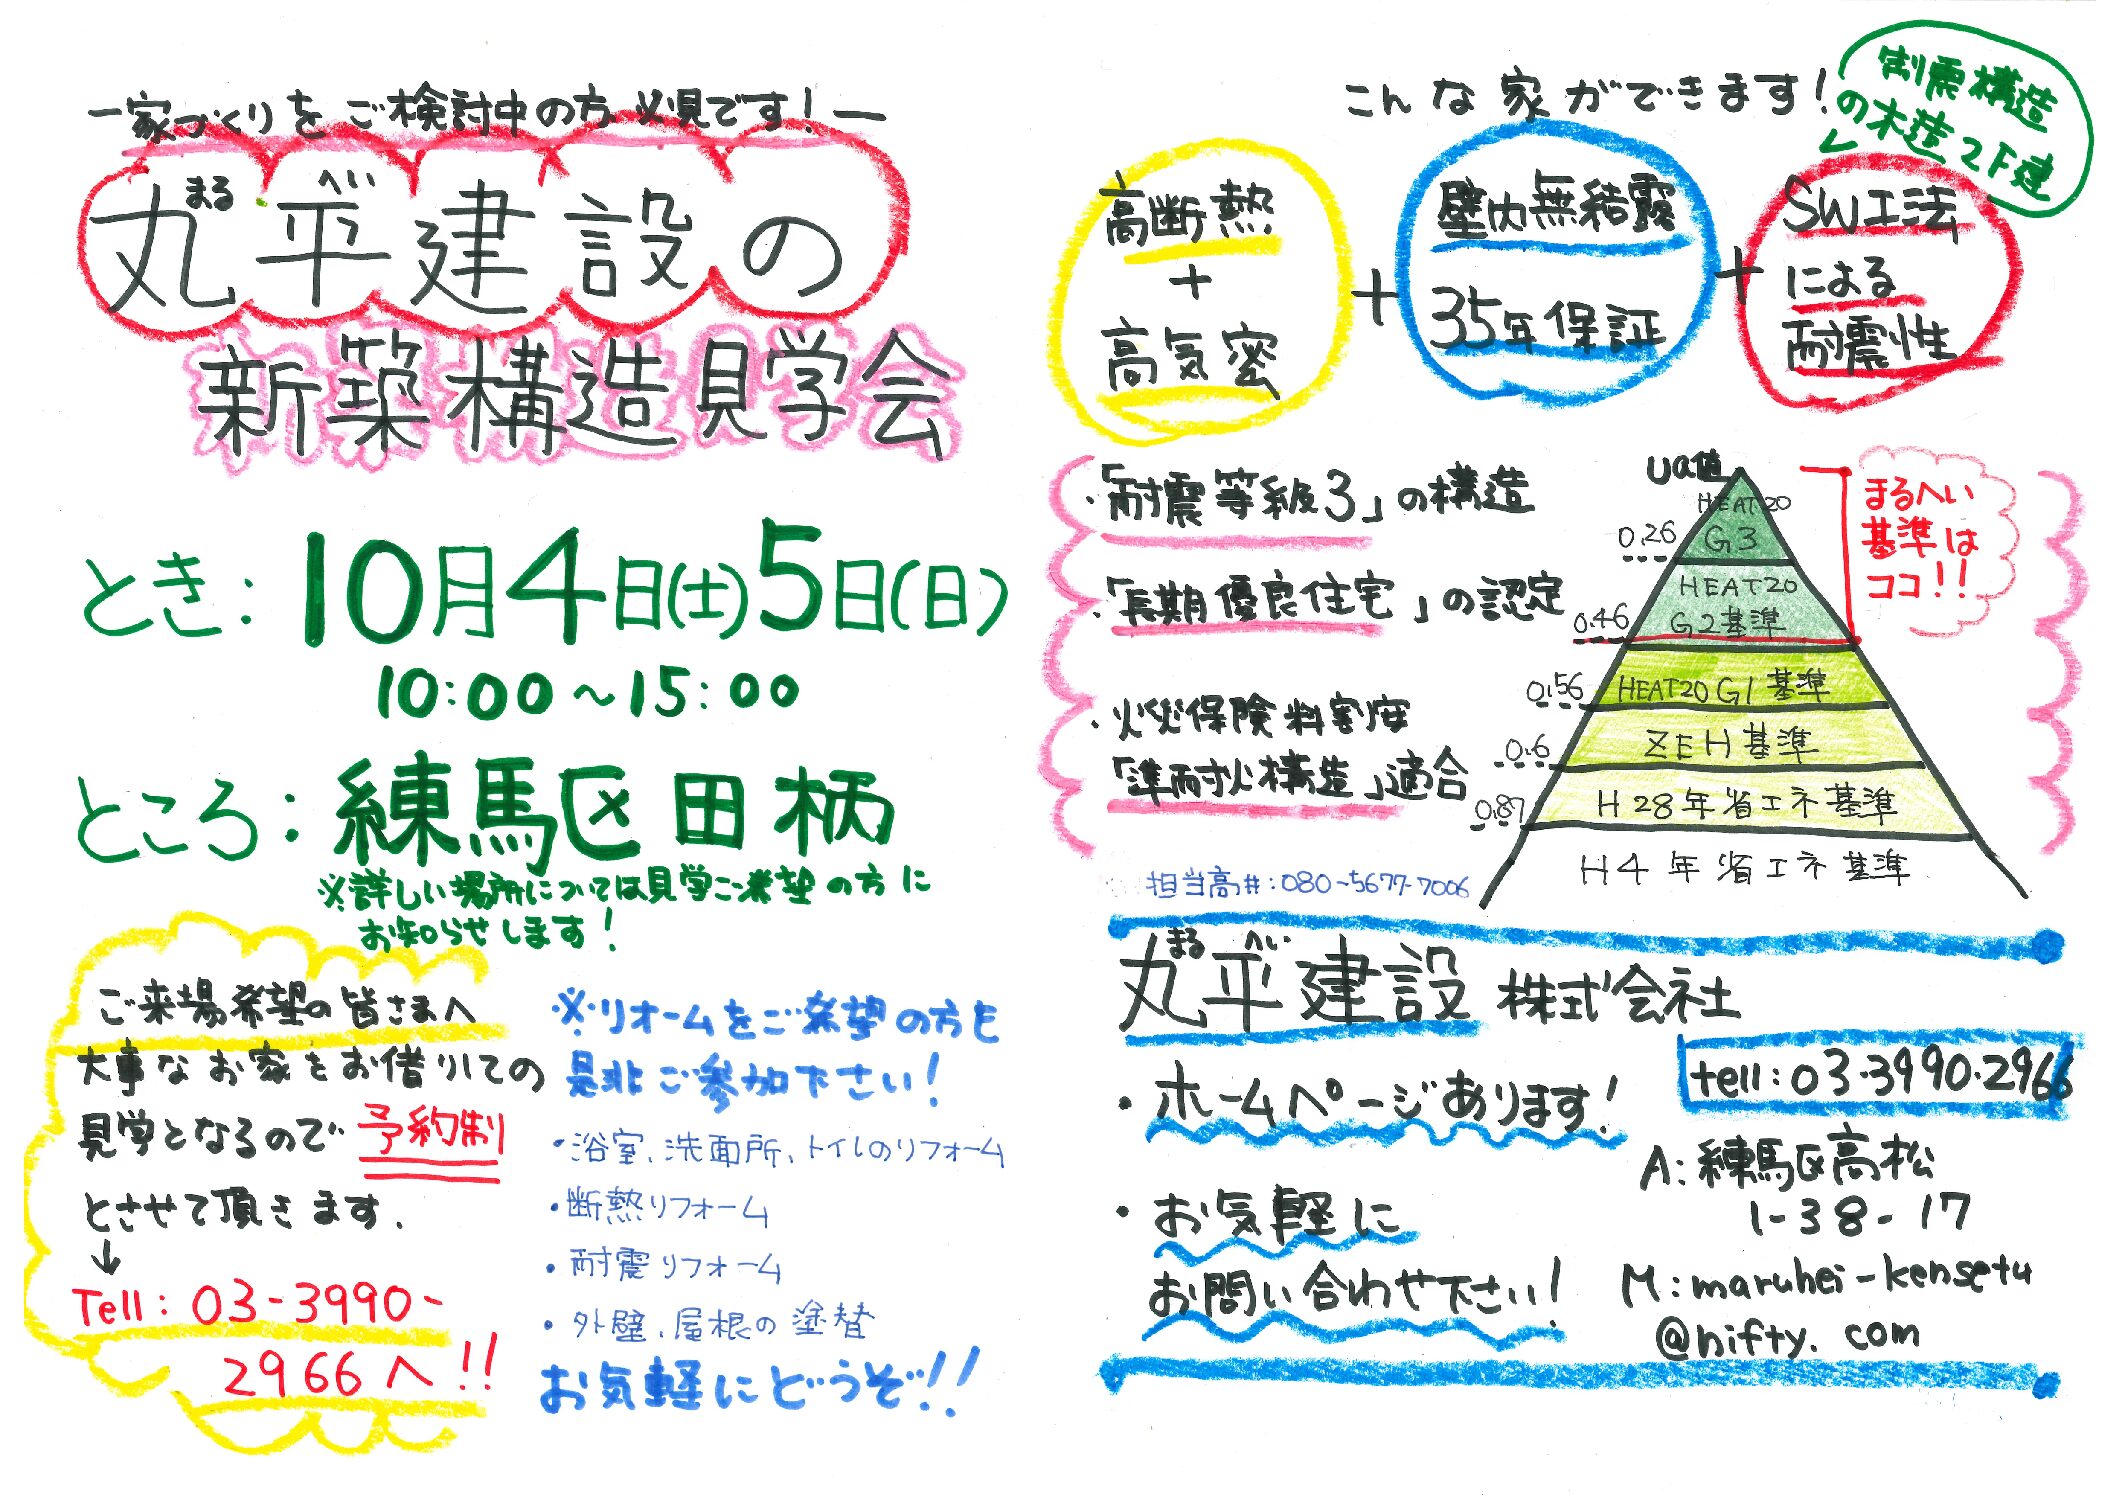 ー家づくりをご検討中の方必見です!ー
丸平建設の
まる へい
新築構造見学会
とき:10月4日(土)5日(日)
10:00~15:00
ところ:練馬区田柄
※詳しい場所については見学ご希望の方に
お知らせします!
ご来場希望の皆さまへ
大事なお家をお借りしての
見学となるので予約制
とさせて頂きます.
↓
Tell:03-3990-
2966へ!!
※リォームをご希望の方も
是非ご参加下さい!
・浴室、洗面所、トイレのリフォーム
・断熱リフォーム
・耐震リフォーム
・外壁、屋根の塗替
お気軽にどうぞ!!
こんな家ができます!
制震構造
の木造2F建
高断熱
+
高気密
+
壁内無結露
35年保証
+
SW工法
による
耐震性
・「耐震等級3」の構造
・「長期優良住宅」の認定
・火災保険料割安
「準耐火構造」適合
Ua値
HEAT20
G3
0.26
HEAT20
G2基準
0.46
HEAT20 G1基準
0.56
ZEH基準
0.6
H28年省エネ基準
0.87
H4年省エネ基準
まるへい
基準は
ココ!!
担当高井:080-5677-7006
丸平建設株式会社
まる へい
tell:03-3990-2966
・ホームページあります!
・お気軽に
お問い合わせ下さい!
A:練馬区高松
1-38-17
M:maruhei-kensetu
@nifty.com